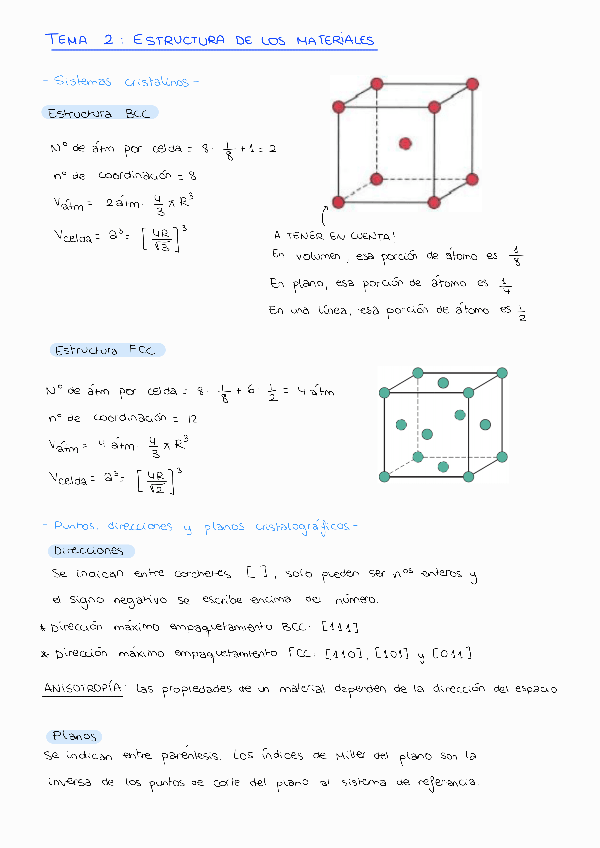 TEMA 2: ESTRUCTURA DE LOS MATERIALES
- Sistemas cristalinos -
Estructura BCC
Nº de átm por celda = 8 · 1/8 + 1 = 2
nº de coordinación = 8
Vátm = 2 átm · 4/3 π R³
Vcelda = a³ = [4R/√3]³
A TENER EN CUENTA!
En volumen, esa porción de átomo es 1/8
En plano, esa porción de átomo es 1/4
En una línea, esa porción de átomo es 1/2
Estructura FCC
Nº de átm por celda = 8 · 1/8 + 6 · 1/2 = 4 átm
nº de coordinación = 12
Vátm = 4 átm · 4/3 π R³
Vcelda = a³ = [4R/√2]³
- Puntos, direcciones y planos cristalográficos -
Direcciones
Se indican entre corchetes [ ], solo pueden ser nºs enteros y
el signo negativo se escribe encima del número.
* Dirección máximo empaquetamiento BCC: [111]
* Dirección máximo empaquetamiento FCC: [110], [101] y [011]
ANISOTROPÍA: Las propiedades de un material dependen de la dirección del espacio
Planos
Se indican entre paréntesis. Los índices de Miller del plano son la
inversa de los puntos de corte del plano al sistema de referencia.